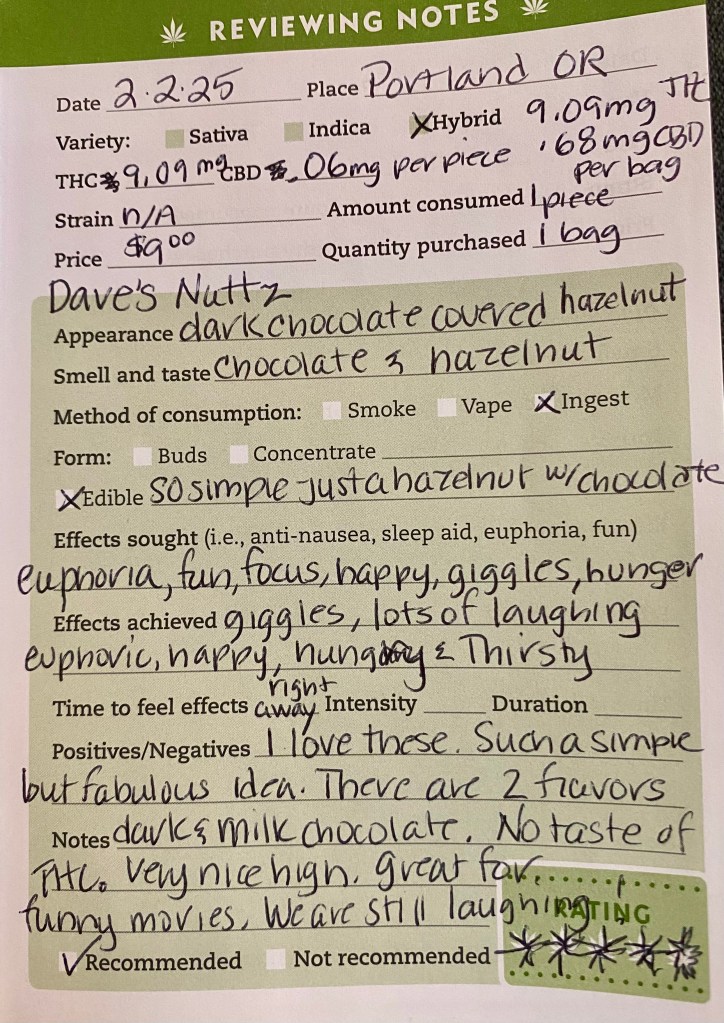 REVIEWING NOTES
Date 2.2.25 Place Portland OR
Variety: Sativa Indica Hybrid 9.09mg THC
THC 9.09 mg CBD .06mg per piece .68mg CBD
per bag
Strain n/A Amount consumed 1 piece
Price $9.00 Quantity purchased 1 bag
Dave's Nuttz
Appearance dark chocolate covered hazelnut
Smell and taste chocolate & hazelnut
Method of consumption: Smoke Vape Ingest
Form: Buds Concentrate
Edible SO simple - just a hazelnut w/ chocolate
Effects sought (i.e., anti-nausea, sleep aid, euphoria, fun)
euphoria, fun, focus, happy, giggles, hunger
Effects achieved giggles, lots of laughing
euphoric, happy, hungry & Thirsty
right
Time to feel effects away Intensity Duration
Positives/Negatives I love these. Such a simple
but fabulous idea. There are 2 flavors
Notes dark & milk chocolate. No taste of
THC. Very nice high. Great for
funny movies. We are still laughing!
RATING
Recommended Not recommended